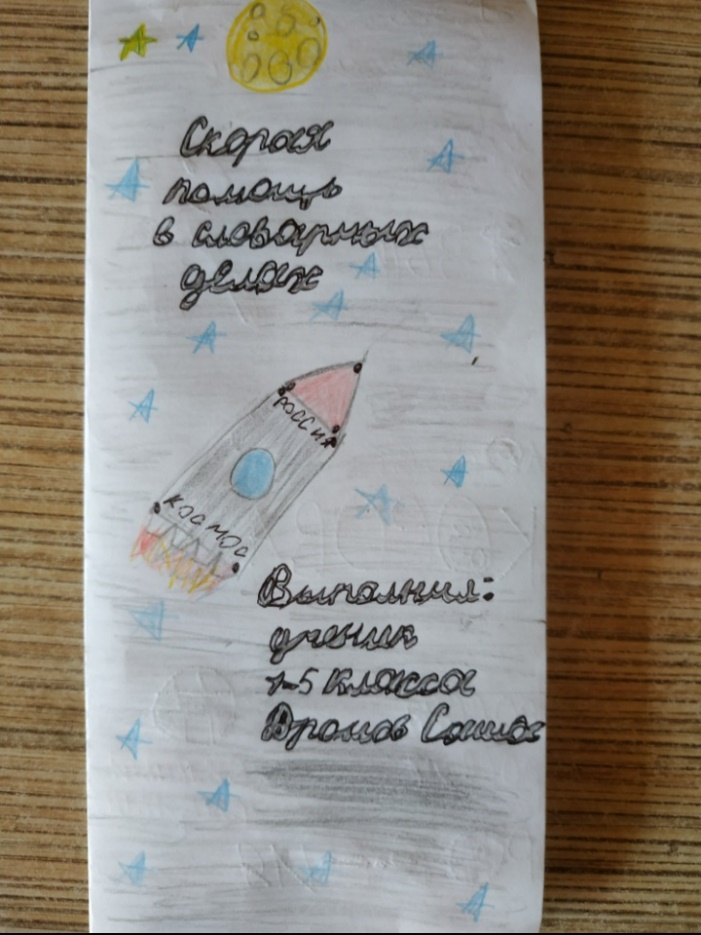 Скорая
помощь
в словарных
делах
РОССИЯ
КОСМОС
Выполнил:
ученик
1-5 класса
Дромов Саша